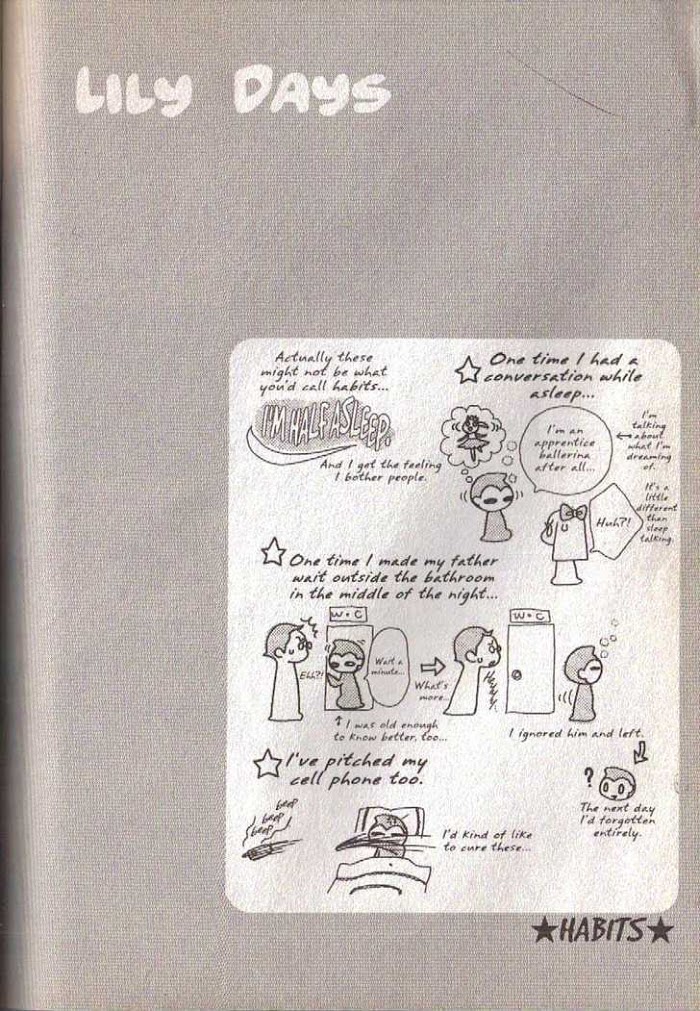 LILY DAYS
Actually these
might not be what
you'd call habits...
I'M HALF ASLEEP.
And I get the feeling
I bother people.
One time I had a
conversation while
asleep...
I'm an
apprentice
ballerina
after all...
I'm
talking
about
what I'm
dreaming
of.
It's a
little
different
than
sleep
talking.
Huh?!
One time I made my father
wait outside the bathroom
in the middle of the night...
W•C
Eh?!
Wait a
minute...
I was old enough
to know better, too...
What's
more...
W•C
Hey
I ignored him and left.
?
The next day
I'd forgotten
entirely.
I've pitched my
cell phone too.
beep
beep
beep
I'd kind of like
to cure these...
★HABITS★